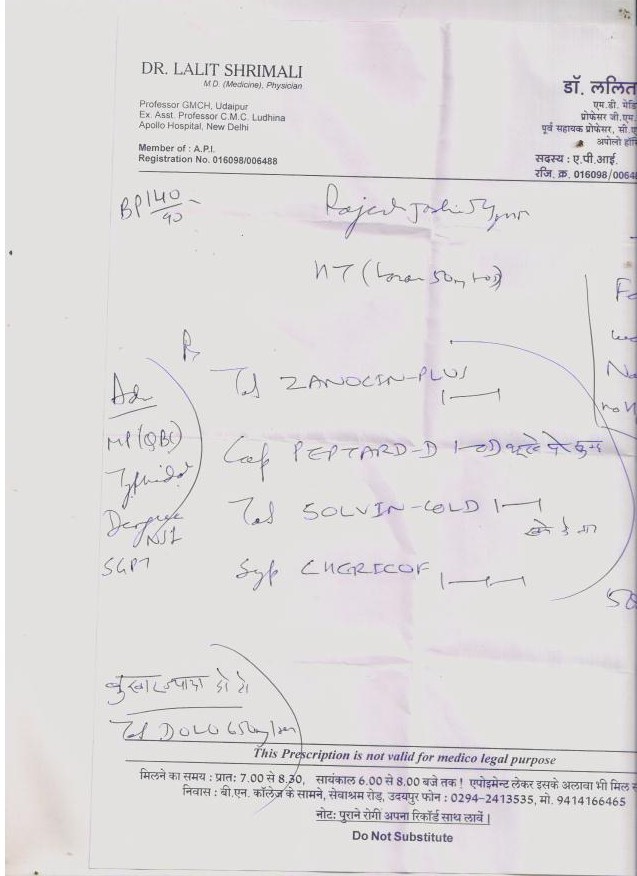 DR. LALIT SHRIMALI
M.D. (Medicine), Physician
Professor GMCH, Udaipur
Ex. Asst. Professor C.M.C. Ludhina
Apollo Hospital, New Delhi
Member of : A.P.I.
Registration No. 016098/006488
डॉ. ललित
एम.डी. मेडि
प्रोफेसर जी.एम.
पूर्व सहायक प्रोफेसर, सी.ए
अपोलो हॉस्
सदस्य : ए.पी.आई.
रजि. क्र. 016098/0064
BP 140/90
Rajesh Joshi 54
HT
Adv
MP (QBC)
Typhidot
Dengue
NS1
SGPT
Tab ZANOCIN-PLUS 1—1
Cap PEPTARD-D 1-OD
Tab SOLVIN-COLD 1—1
Syp CHERICOF 1—1—1
बुखार ज्यादा हो तो
Tab DOLO 650mg
This Prescription is not valid for medico legal purpose
मिलने का समय : प्रातः 7.00 से 8.30, सायंकाल 6.00 से 8.00 बजे तक ! एपोइमेन्ट लेकर इसके अलावा भी मिल स
निवास : बी.एन. कॉलेज के सामने, सेवाश्रम रोड़, उदयपुर फोन : 0294-2413535, मो. 9414166465
नोट: पुराने रोगी अपना रिकॉर्ड साथ लावें |
Do Not Substitute